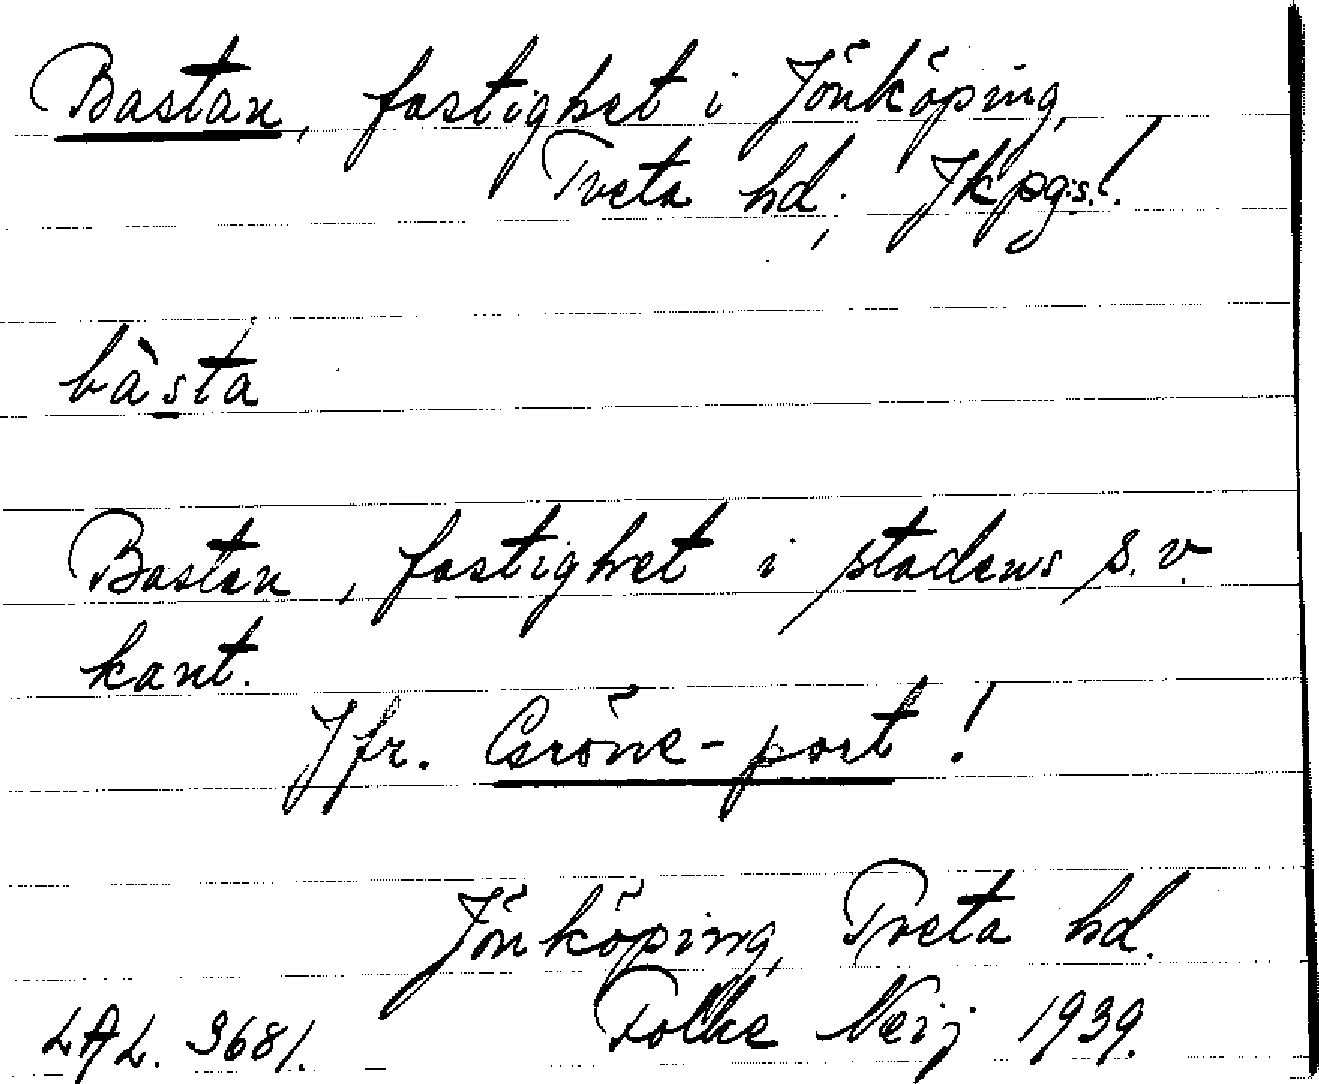 Bastan, fastighet i Jönköping,
Tveta hd; Jkpgs. l.
bàsta
Bastan, fastighet i stadens s.v.
kant.
Jfr. Gröne-port!
Jönköping, Tveta hd.
Folke Neij 1939.
LAL. 3681.